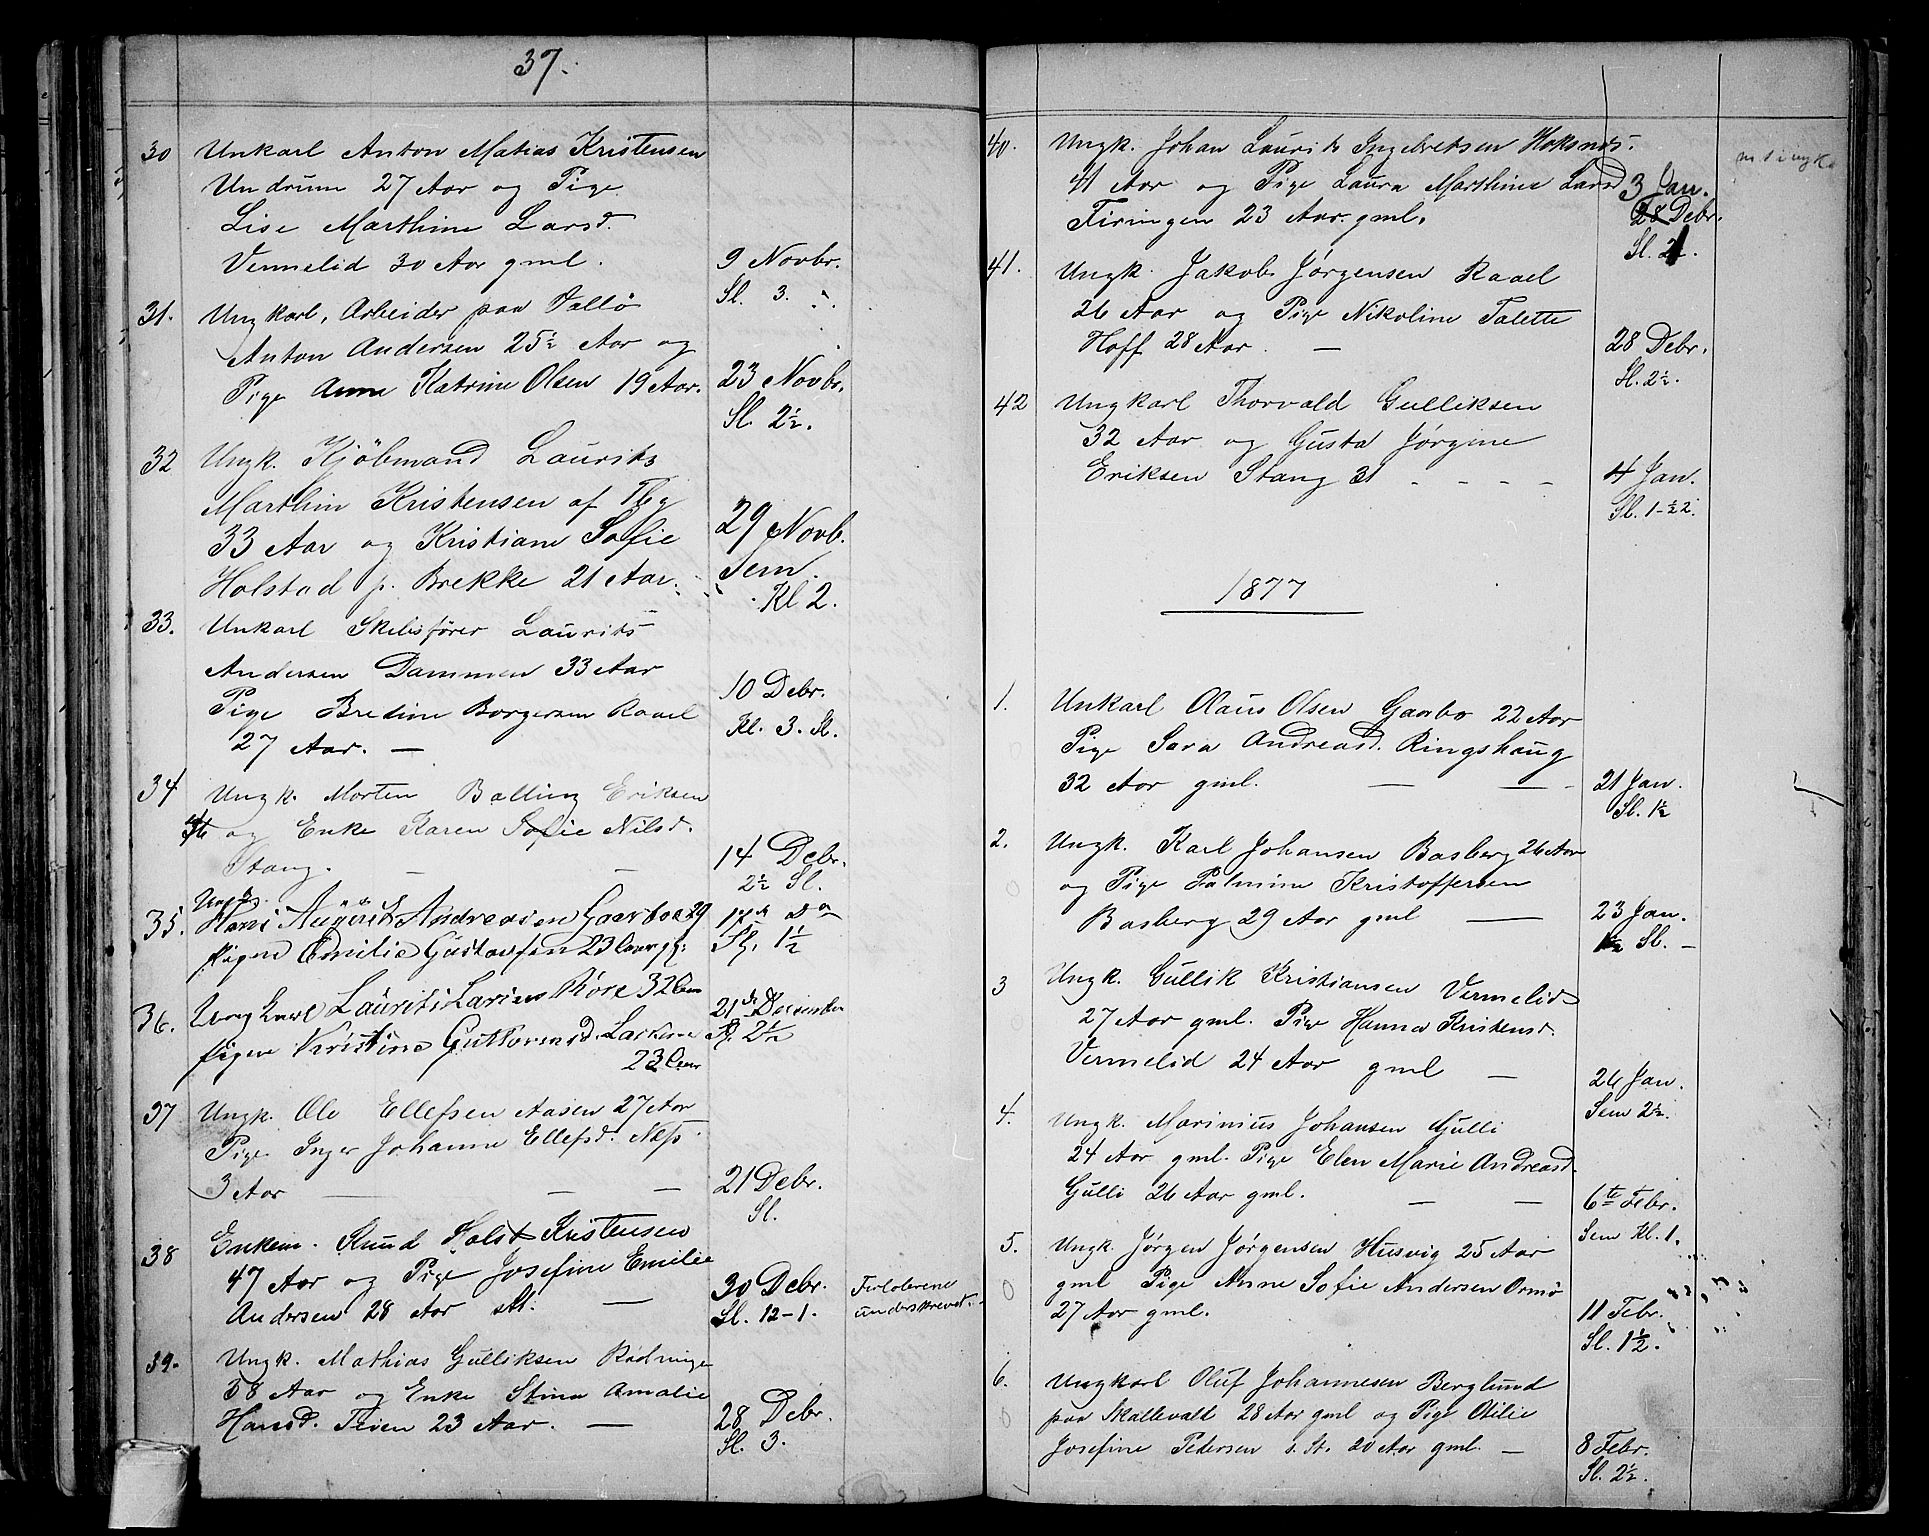 37.
30 Unkarl Anton Matias Kristensen
Undrum 27 Aar og Pige
Lise Marthine Larsd.
Vermelid 30 Aar gml. 9 Novbr.
Sl. 3.
31. Ungkarl, Arbeider paa Vallö
Anton Andersen 25½ Aar og
Pige Anne Katrine Olsen 19 Aar. 23 Novbr.
Sl. 2½.
32 Ungk. Kjöbmand Laurits
Marthin Kristensen af Tbg
33 Aar og Kristiane Sofie 29 Novb.
Holstad p. Brekke 21 Aar. Sem.
Kl 2.
33. Unkarl Skibsfører Laurits
Andersen Dammen 33 Aar
Pige Bredine Borgersen Raael 10 Debr.
27 Aar. — Kl. 3. Sl.
34 Ungk. Morten Balling Eriksen
og Enke Karen Sofie Nilsd.
Stang. — — 14 Debr.
2½ Sl.
Ungk.
35. Hans August Andreasen Gaarboe 29 17de Do
Pigen Emilie Gustavsen 23 Sl. 1½
36. Ung karl Laurits Larsen Röre 32 Aar 21de December
Pigen Kristine Guttormsd. Sl. 2½
23 Aar
37 Ungk. Ole Ellefsen Aasen 27 Aar
Pige Inger Johanne Ellefsd. Næss.
3 Aar — — — 21 Debr.
Sl.
38 Enkem. Knud Holst Kristensen
47 Aar og Pige Josefine Emilie
Andersen 28 Aar — 30 Debr. Forloverne
Sl. 12-1. underskrevet.
39. Ungk. Mathias Gulliksen Rödninge
38 Aar og Enke Stina Amalie
Hansd. Teien 23 Aar. — 28 Debr.
Sl. 3.
40. Ungk. Johan Laurits Ingebretsen Hoksnæs.
41 Aar og Pige Laura Marthine Larsd 3 Jan.
Firingen 23 Aar. gml. 28 Debr.
Sl. 2.
41. Ungk. Jakob Jørgensen Raael
26 Aar og Pige Nikoline Talette
Hoff 28 Aar. — 28 Debr.
Sl. 2½.
42 Ungkarl Thorvald Gulliksen
32 Aar og Gusta Jørgine
Eriksen Stang 31 - - - - 4 Jan.
Sl. 1-½2.
1877
1. Unkarl Olaus Olsen Gaarbo 22 Aar
Pige Sara Andreasd. Ringshaug
32 Aar gml. — — 21 Jan.
Sl. 1½
2. Ungk. Karl Johansen Basberg 26 Aar
og Pige Palmine Kristoffersen
Basberg 29 Aar gml — 23 Jan.
Sl. —
3 Ungk. Gullik Kristiansen Vermelid
27 Aar gml. Pige Hanna Kristensd.
Vermelid 24 Aar gml — 26 Jan.
Sem 2½.
4. Ungk. Marinius Johansen Gulli
24 Aar gml. Pige Elen Marie Andreasd.
Gulli 26 Aar gml. — — 6te Febr.
Sem Kl. 1.
5. Ungk. Jørgen Jørgensen Husvig 25 Aar
gml Pige Anne Sofie Andersen Ormö
27 Aar gml. 11 Febr.
Sl. 1½.
6. Ungkarl Oluf Johannesen Berglund
paa Skallevald 28 Aar gml og Pige Otilie
Josefine Pedersen s. St. 20 Aar gml. — 8 Febr.
Sl. 2½.